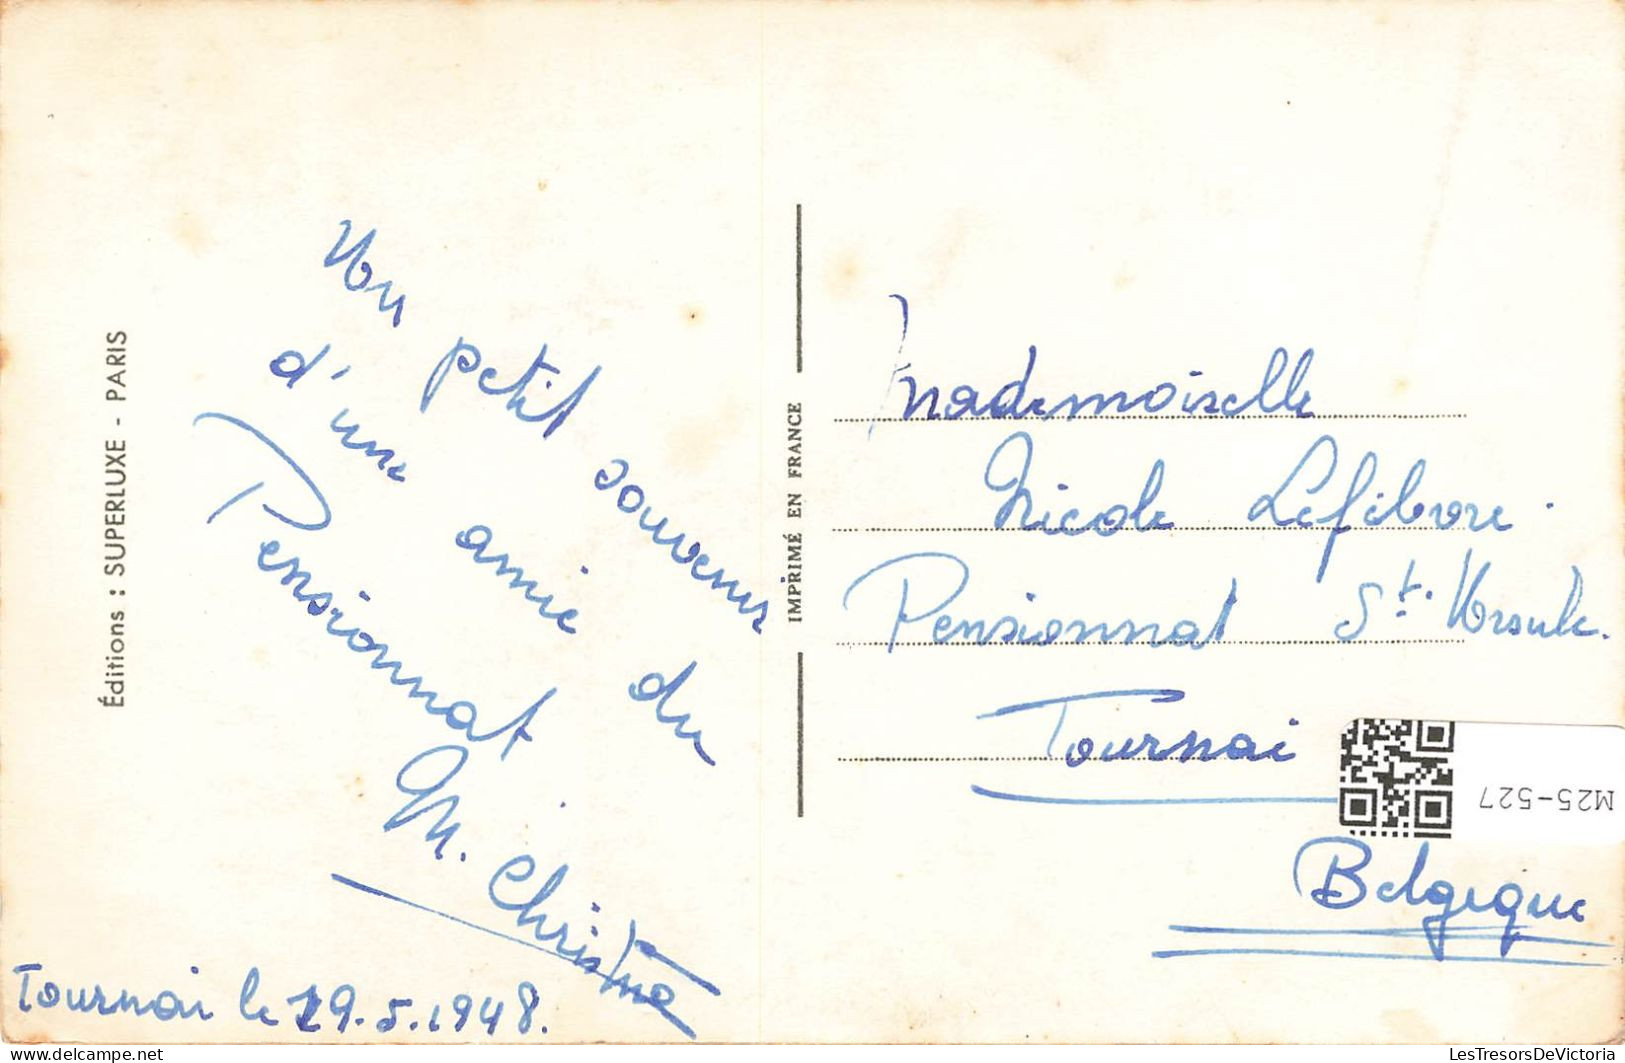 Un petit souvenir
d'une amie du
Pensionnat
M. Christine
Tournai le 29.5.1948.
Éditions : SUPERLUXE - PARIS
IMPRIMÉ EN FRANCE
Mademoiselle
Nicole Lefebvre.
Pensionnat St. Ursule.
Tournai
Belgique
M25-527
delcampe.net
LesTresorsDeVictoria